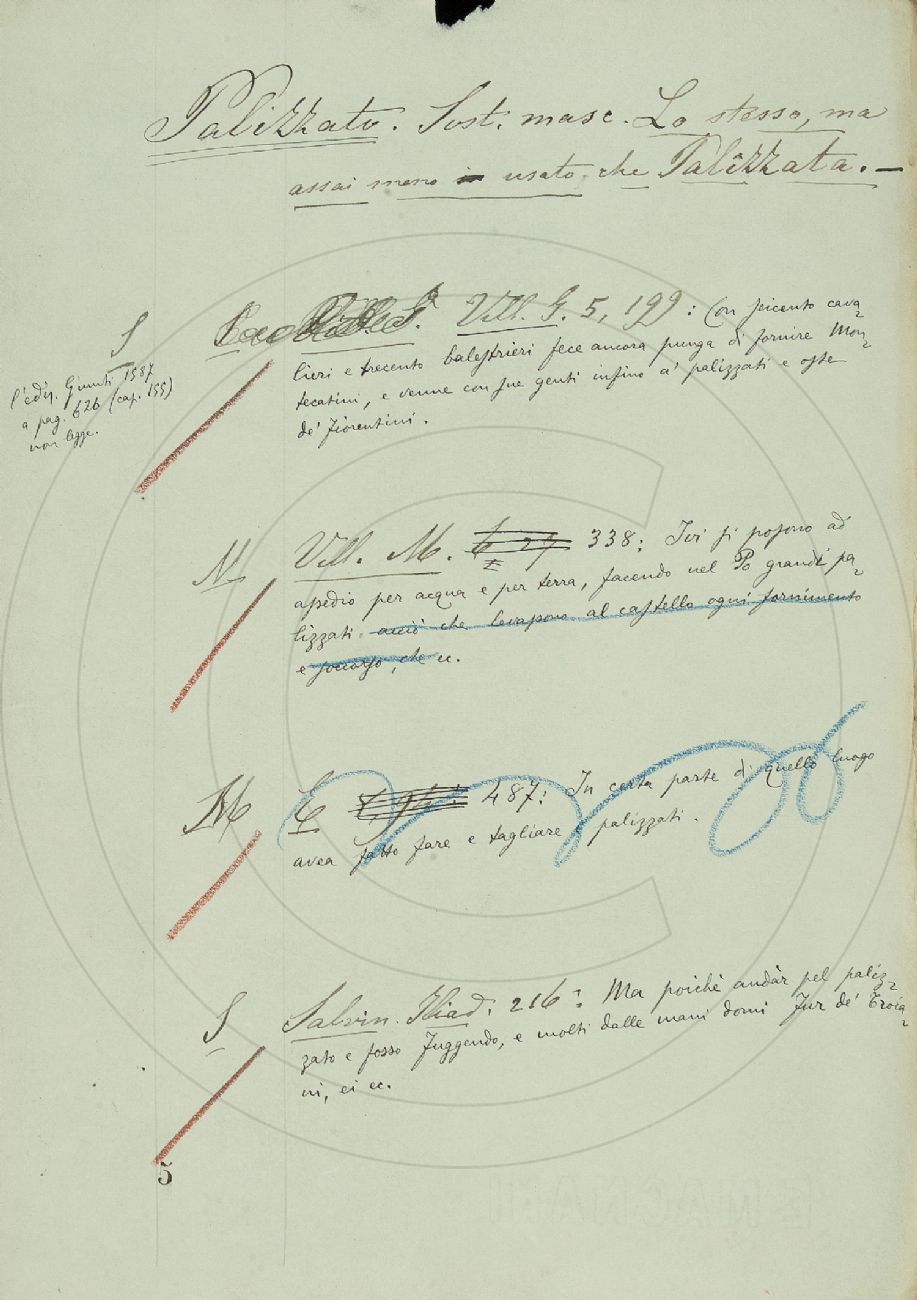 Palizzato. Sost. masc. Lo stesso, ma
assai meno usato, che Palizzata. —
S
l'ediz. Giunti 1587
a pag. 626 (cap. 155)
non legge.
Vill. G. 5, 199: Con seicento cava
lieri e trecento balestrieri fece ancora punga di fornire Mon
tecatini, e venne con sue genti infino a' palizzati e oste
de' Fiorentini.
N
Vill. M. 338: Ivi si posono ad
assedio per acqua e per terra, facendo nel Po grandi pa
lizzati acciò che levassono al castello ogni fornimento
e soccorso, che ec.
M
E 487: In certa parte di quello luogo
avea fatto fare e tagliare e palizzati.
S
Salvin. Iliad. 216: Ma poichè andàr pel paliz
zato e fosso Fuggendo, e molti dalle mani domi Fur de' Troia
ni, ei ec.
5